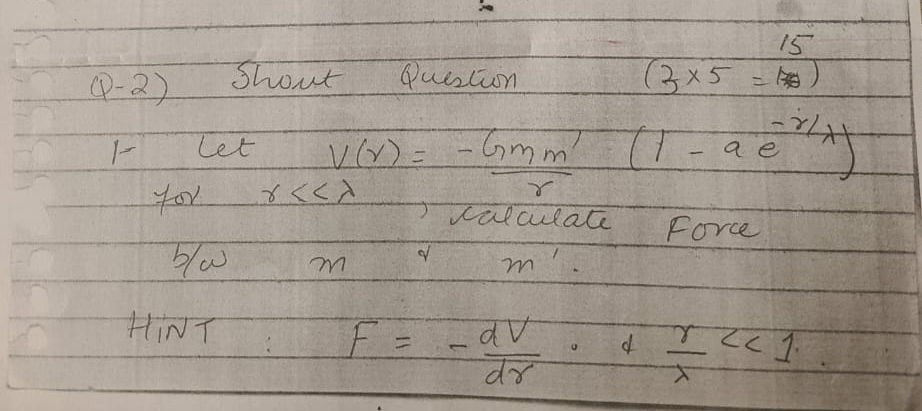 Q-2) Short Question (3×5 = 15)
1- Let V(r) = -Gmm'/r (1 - a e^{-r/λ})
for r<<λ, calculate Force
b/w m & m'.
HINT : F = -dV/dr . & r/λ << 1.